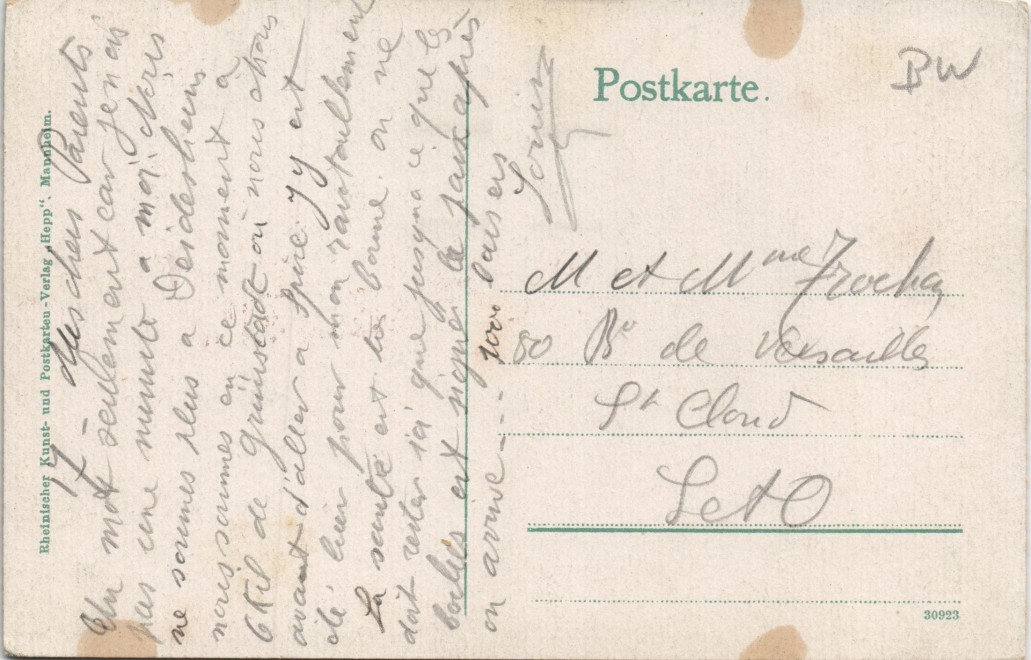 Postkarte.
BW
Rheinischer Kunst- und Postkarten-Verlag „Hepp“, Mannheim.
17 - chers Parents
Un mot seulement car je n'ai
pas une minute à moi. Nous
ne sommes plus a Deidesheim
nous sommes en ce moment à
6 Kil de Grünstadt où nous étions
avant d'aller a Spire. J'y ai
été hier pour mon
La santé est très bonne. on ne
doit rester ici que jusqu'a ce que les
boches est signer la paix après
on arrive -- 1000 baisers
Louis
M et Mme
80 Bd de Versailles
St Cloud
S et O
30923